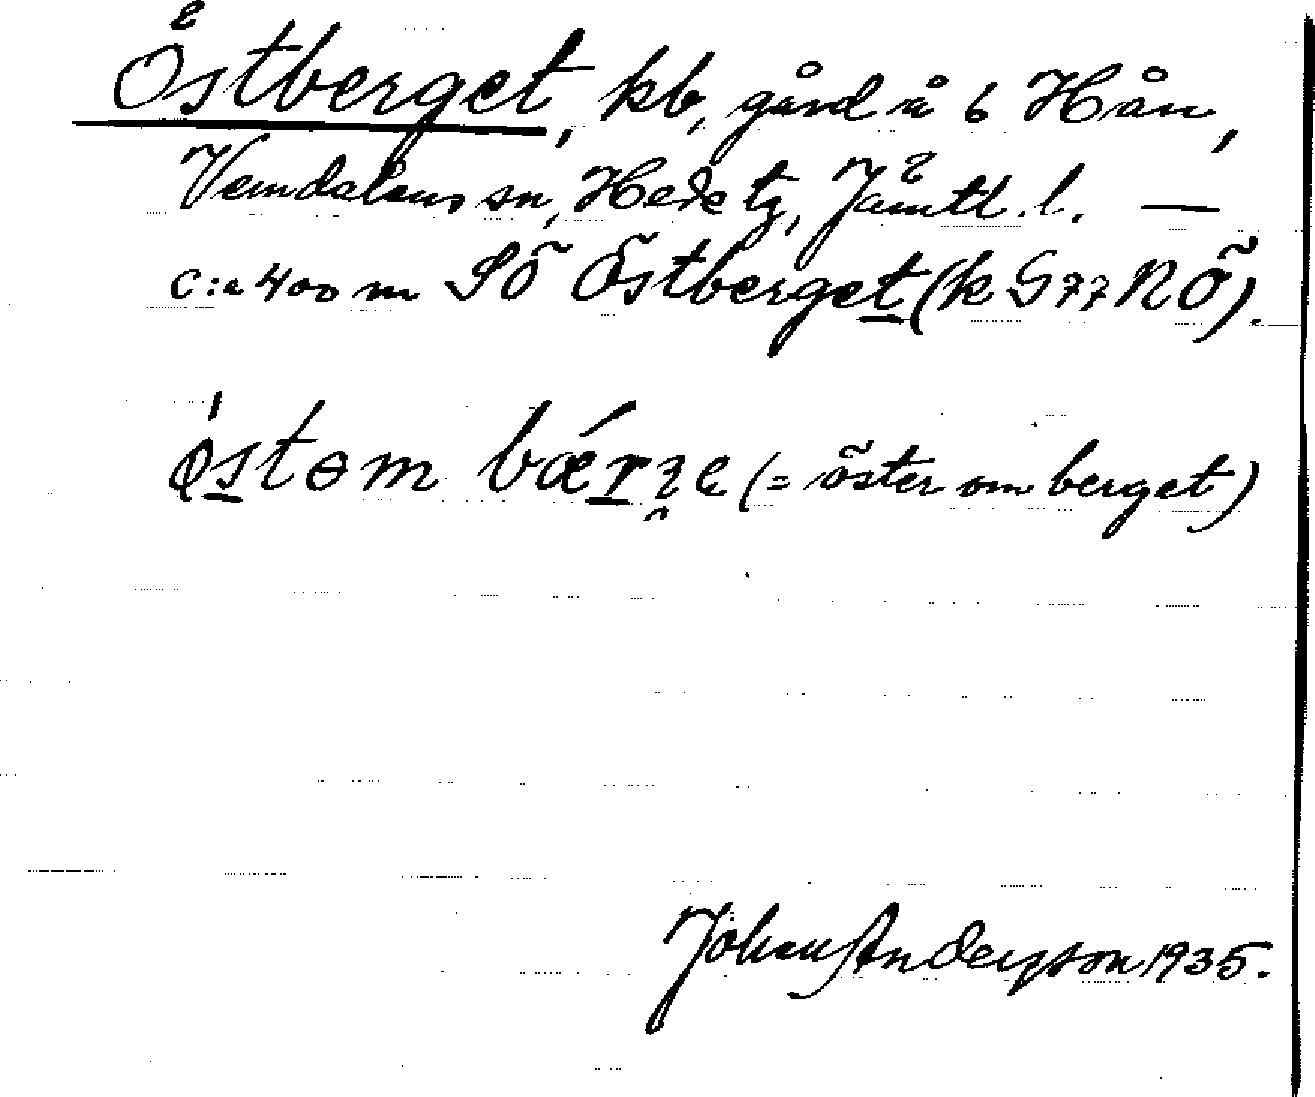 Östberget, kb, gård å 6 Hån,
Vemdalens sn, Hede tg, Jämtl. l. —
c:a 400 m SÖ Östberget (k S 77 NÖ).
östəm bærʒe (= öster om berget)
Johan Anderson 1935.